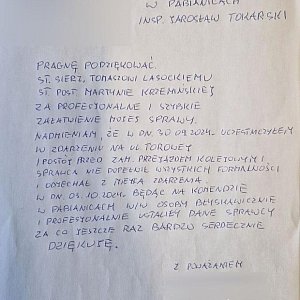 W PABIANICACH
INSP. JAROSŁAW TOKARSKI
PRAGNĘ PODZIĘKOWAĆ.
ST. SIERŻ. TOMASZOWI LASOCKIEMU
ST. POST. MARTYNIE KRZEMIŃSKIEJ
ZA PROFESJONALNE I SZYBKIE
ZAŁATWIENIE MOJEJ SPRAWY.
NADMIENIAM, ŻE W DN. 30.09.2024. UCZESTNICZYŁEM
W ZDARZENIU NA UL. TOROWEJ
(POSTÓJ PRZED ZAM. PRZEJAZDEM KOLEJOWYM)
SPRAWCA NIE DOPEŁNIŁ WSZYSTKICH FORMALNOŚCI
I ODJECHAŁ Z MIEJSCA ZDARZENIA.
W DN. 05.10.2024. BĘDĄC NA KOMENDZIE
W PABIANICACH W/W OSOBY BŁYSKAWICZNIE
I PROFESJONALNIE USTALIŁY DANE SPRAWCY
ZA CO JESZCZE RAZ BARDZO SERDECZNIE
DZIĘKUJĘ.
Z POWAŻANIEM